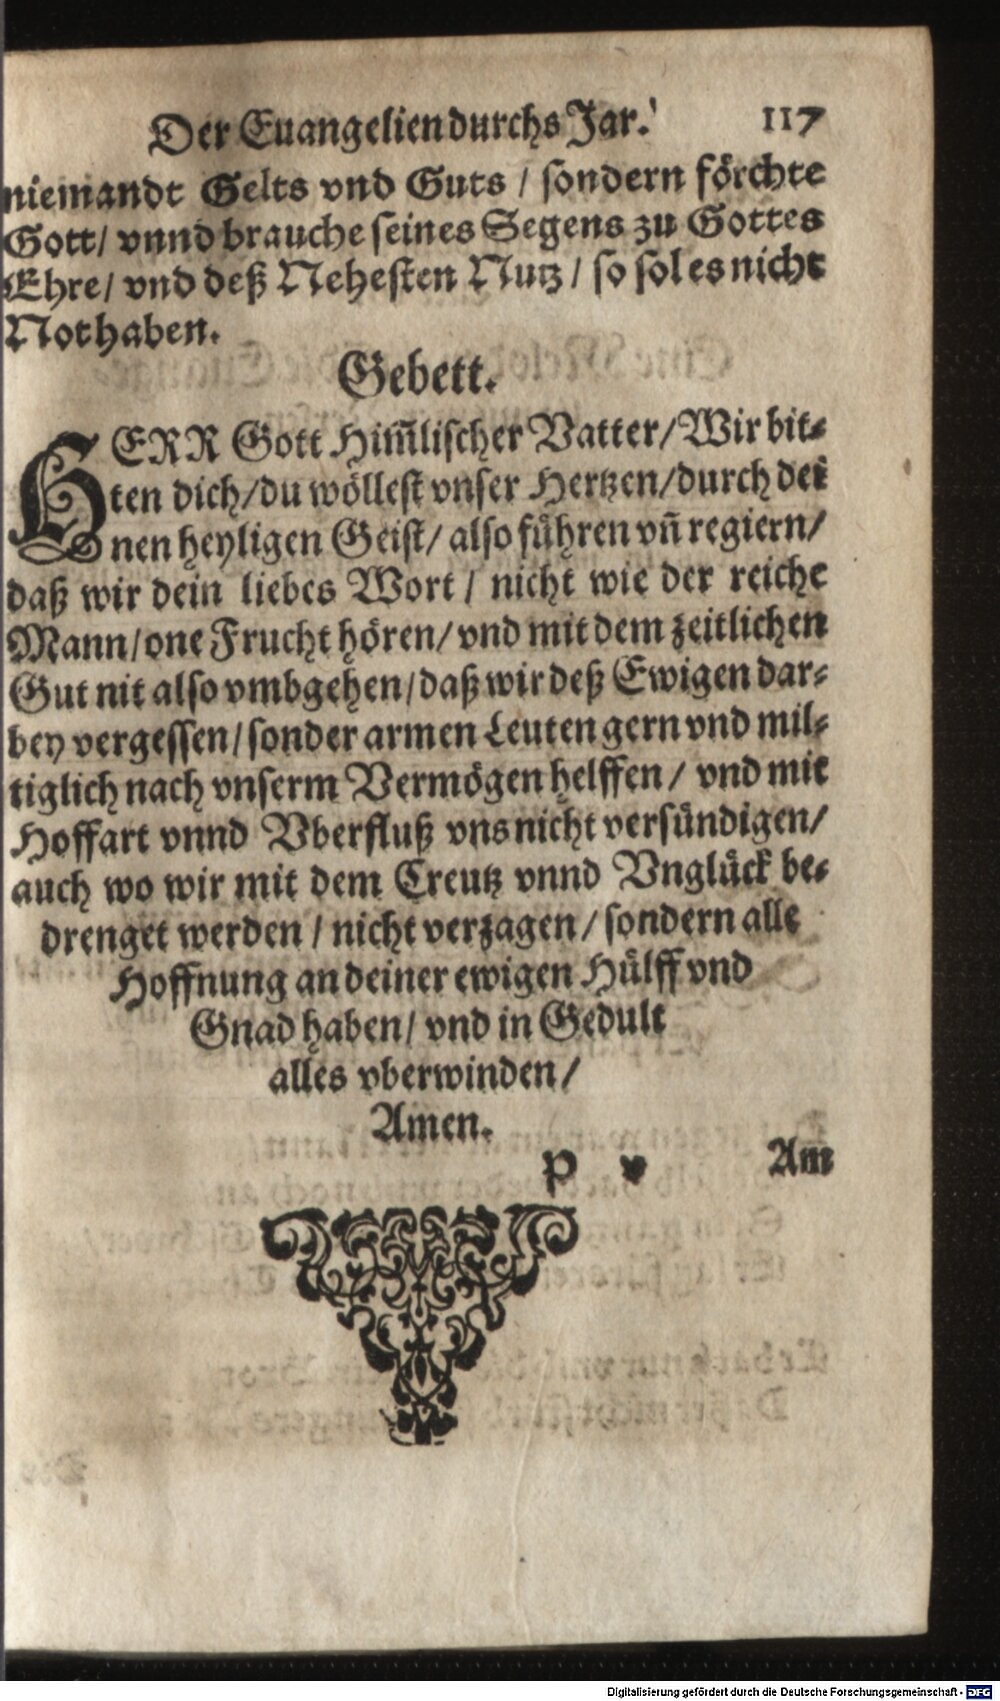 Der Euangelien durchs Jar. 117
niemandt Gelts vnd Guts / sondern förchte
Gott / vnnd brauche seines Segens zu Gottes
Ehre / vnd deß Nehesten Nutz / so sol es nicht
Not haben.
Gebett.
HERR Gott Him̃lischer Vatter / Wir bit-
ten dich / du wöllest vnser Hertzen / durch dei
nen heyligen Geist / also führen vñ regiern /
daß wir dein liebes Wort / nicht wie der reiche
Mann / one Frucht hören / vnd mit dem zeitlichen
Gut nit also vmbgehen / daß wir deß Ewigen dar-
bey vergessen / sonder armen Leuten gern vnd mil-
tiglich nach vnserm Vermögen helffen / vnd mit
Hoffart vnnd Vberfluß vns nicht versündigen /
auch wo wir mit dem Creutz vnnd Vnglück be-
drenget werden / nicht verzagen / sondern alle
Hoffnung an deiner ewigen Hülff vnd
Gnad haben / vnd in Gedult
alles vberwinden /
Amen.
P v Am
Digitalisierung gefördert durch die Deutsche Forschungsgemeinschaft - DFG